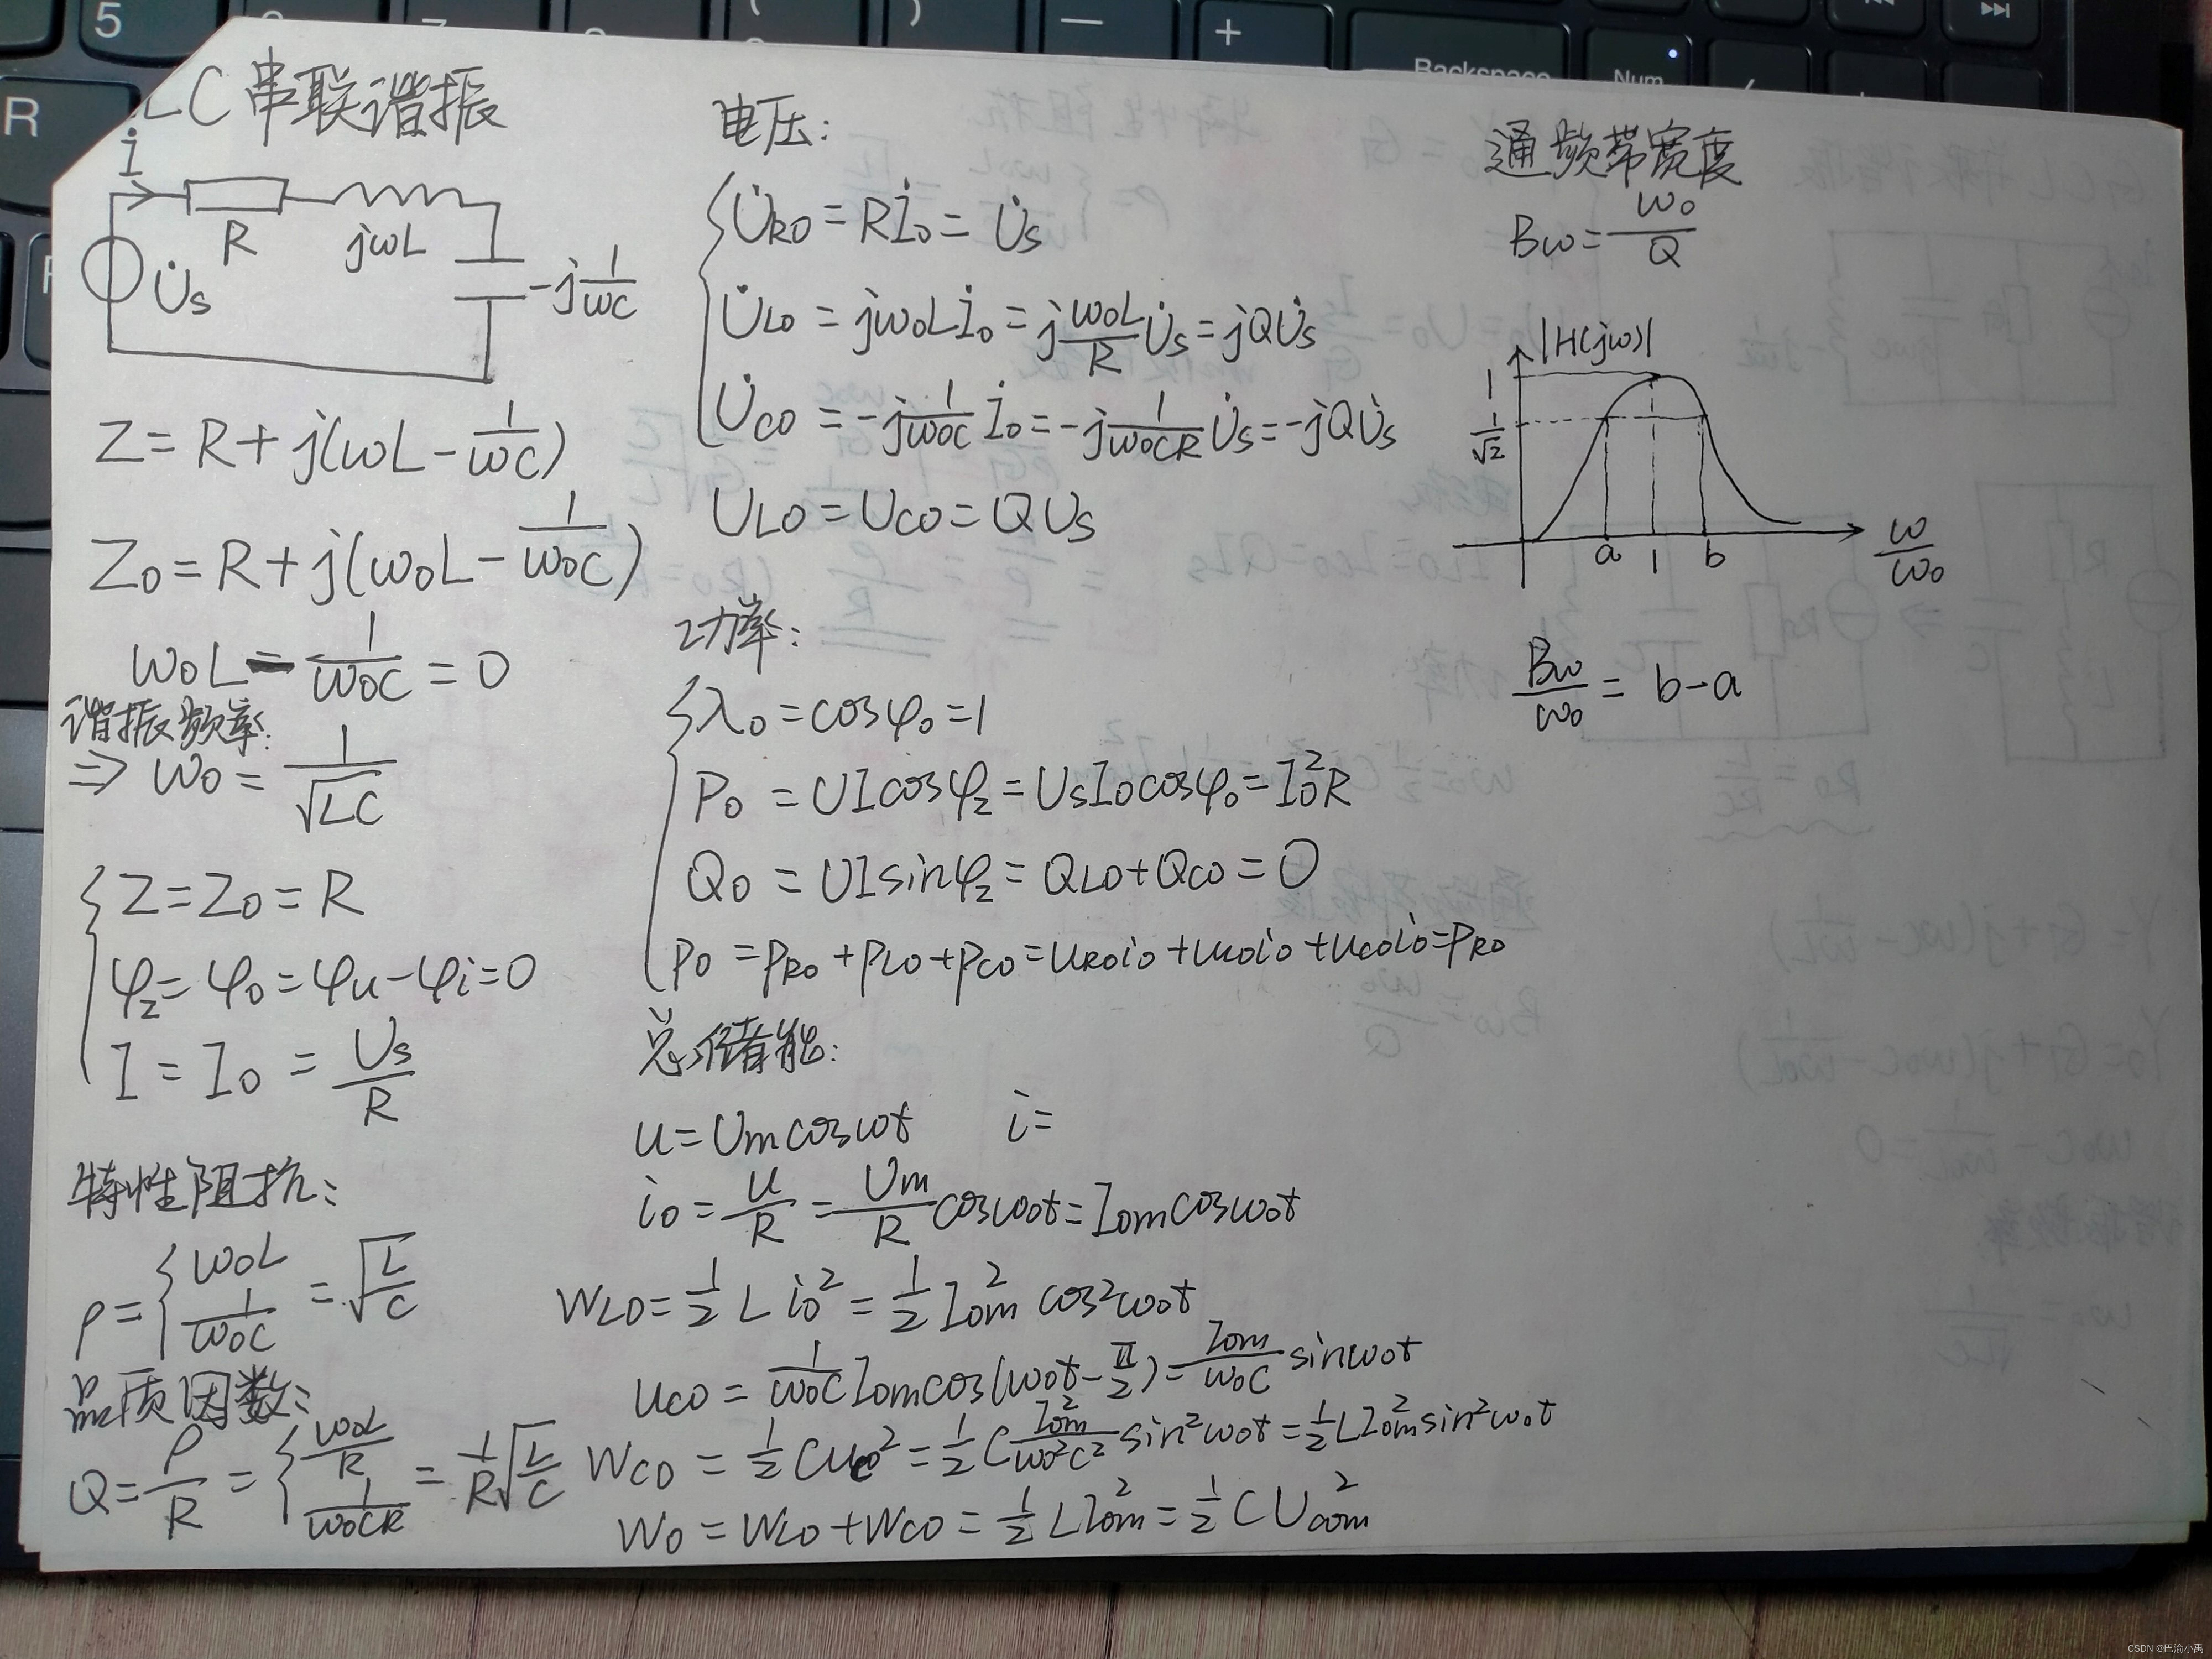 LC串联谐振
i
R
jωL
U̇s
-j1/ωC
Z=R+j(ωL-1/ωC)
Z0=R+j(ω0L-1/ω0C)
ω0L-1/ω0C=0
谐振频率:
⇒ω0=1/√LC
Z=Z0=R
φz=φ0=φu-φi=0
I=I0=Us/R
特性阻抗:
ρ={ω0L
1/ω0C
=√L/C
品质因数:
Q=ρ/R={ω0L/R
1/ω0CR
=1/R√L/C
电压:
U̇R0=Rİ0=U̇s
U̇L0=jω0Lİ0=jω0L/R U̇s=jQU̇s
U̇C0=-j1/ω0C İ0=-j1/ω0CR U̇s=-jQU̇s
UL0=UC0=QUs
功率:
λ0=cosφ0=1
P0=UIcosφz=UsI0cosφ0=I0²R
Q0=UIsinφz=QL0+QC0=0
p0=pR0+pL0+pC0=uR0i0+uL0i0+uC0i0=pR0
总储能:
u=Umcosωt i=
i0=u/R=Um/R cosω0t=I0mcosω0t
WL0=1/2Li0²=1/2I0m²cos²ω0t
uC0=1/ω0C I0mcos(ω0t-π/2)=I0m/ω0C sinω0t
WC0=1/2Cuc0²=1/2C I0m²/ω0²C² sin²ω0t=1/2LI0m²sin²ω0t
W0=WL0+WC0=1/2LI0m²=1/2CUC0m²
通频带宽度
Bω=ω0/Q
|H(jω)|
1
1/√2
a 1 b
ω/ω0
Bω/ω0=b-a
5
R
+
Backspace
Num
CSDN @巴渝小禹